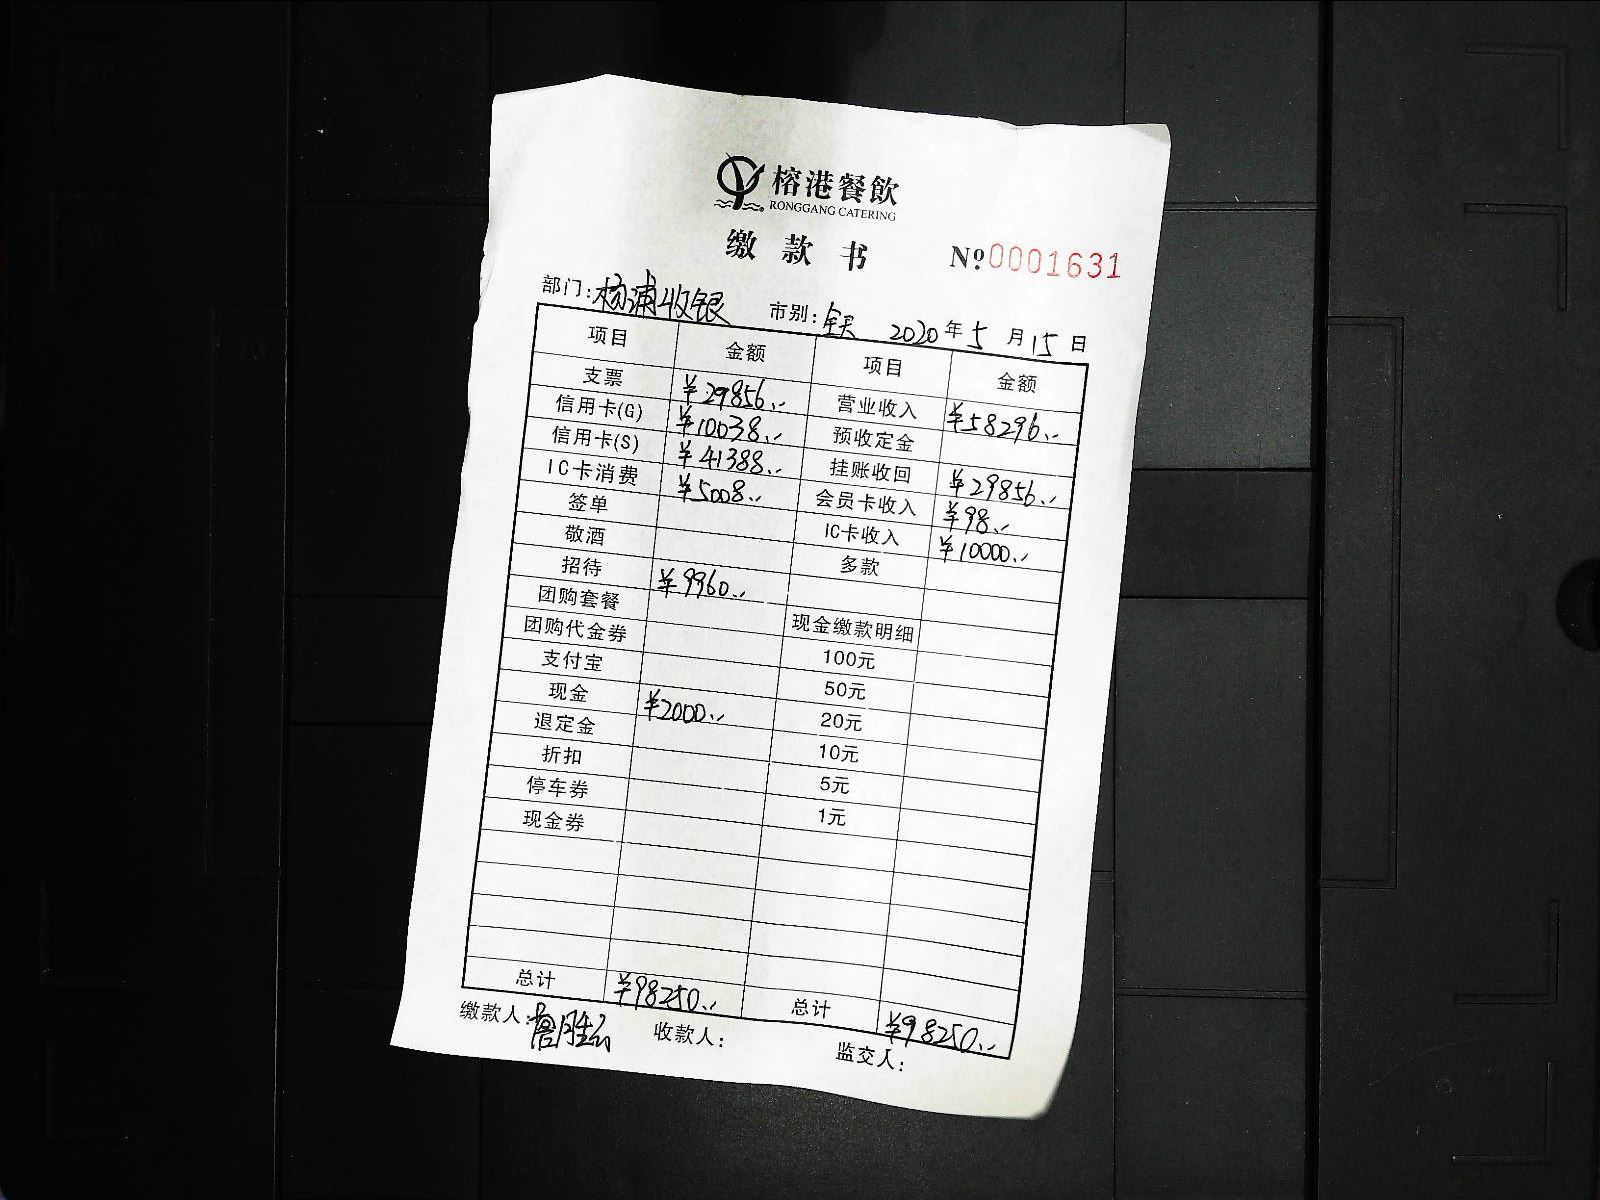 榕港餐飲
RONGGANG CATERING
缴款书 №0001631
部门:杨浦收银 市别:全天 2020年5月15日
项目 金额 项目 金额
支票 ¥29856.- 营业收入 ¥58296.-
信用卡(G) ¥10038.- 预收定金
信用卡(S) ¥41388.- 挂账收回 ¥29856.-
IC卡消费 ¥5008.- 会员卡收入 ¥98.-
签单 IC卡收入 ¥10000.-
敬酒 多款
招待 ¥9960.-
团购套餐 现金缴款明细
团购代金券 100元
支付宝 50元
现金 ¥2000.- 20元
退定金 10元
折扣 5元
停车券 1元
现金券
总计 ¥98250.- 总计 ¥98250.-
缴款人:詹胜云 收款人: 监交人: